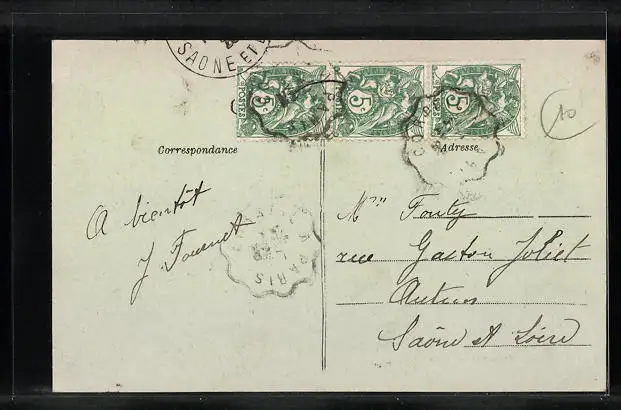 SAONE ET
POSTES 5c
5c
5c
Correspondance
Adresse
10
A bientôt
J. Fournet
A PARIS
Mme Fouty
rue Gaston Joliet
Autun
Saône et Loire